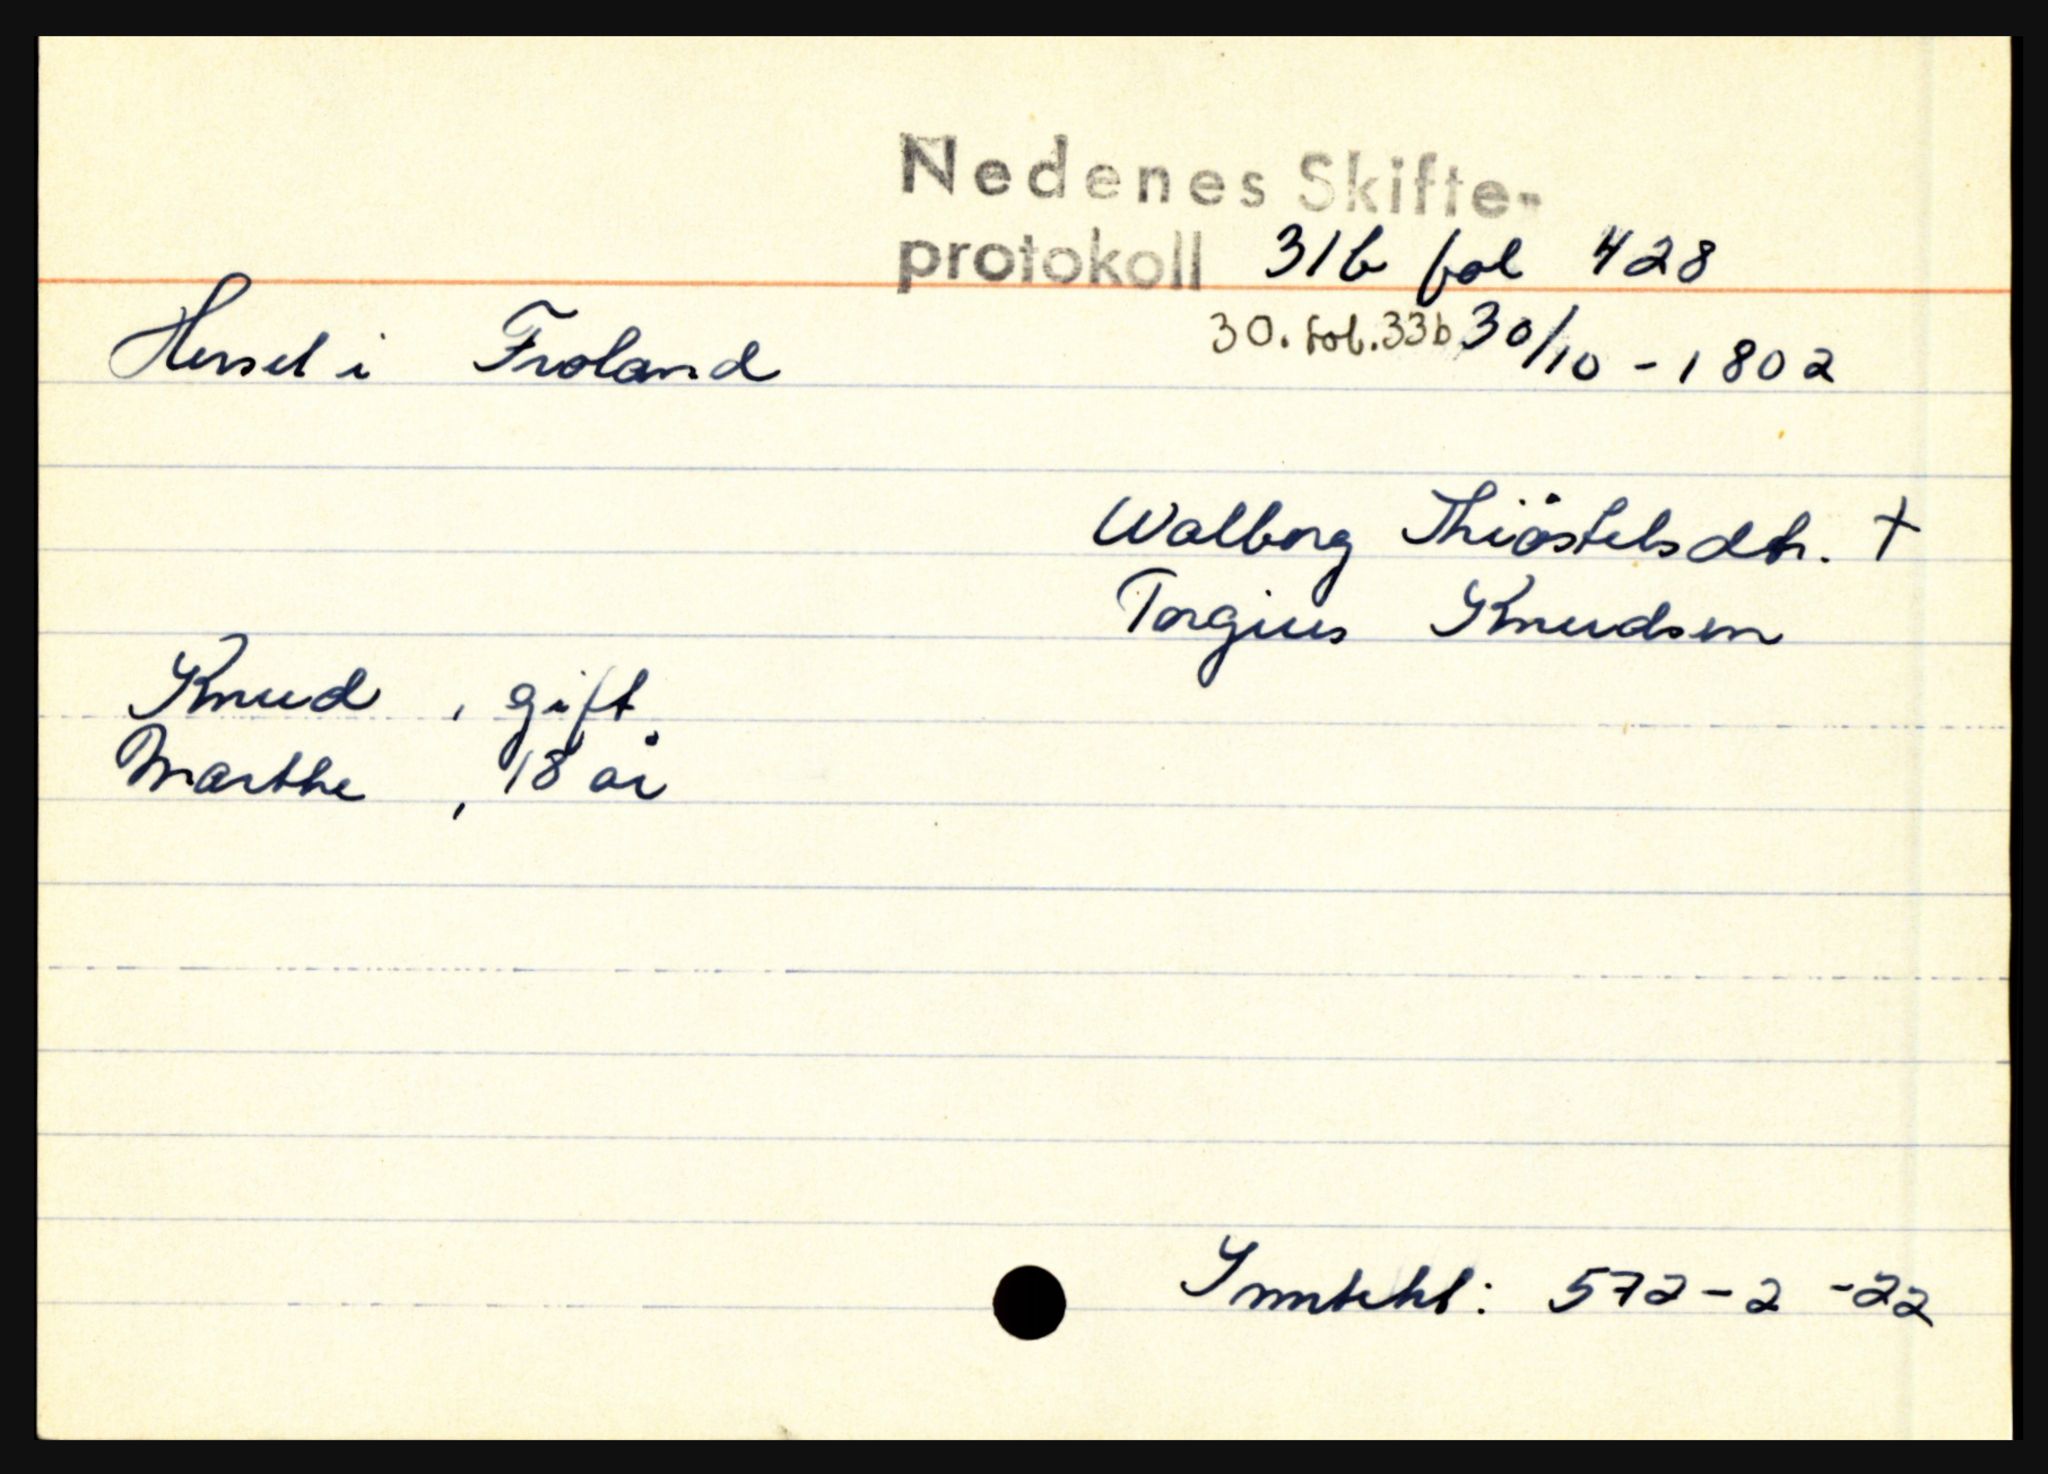 Nedenes Skifte-
protokoll 31b fol 428
30. fol. 33b 30/10 - 1802
Hersel i Froland
Walborg Thiøstelsdtr. †
Torgius Knudsen
Knud , gift
Marthe , 18 år
Inntekt: 572-2-22